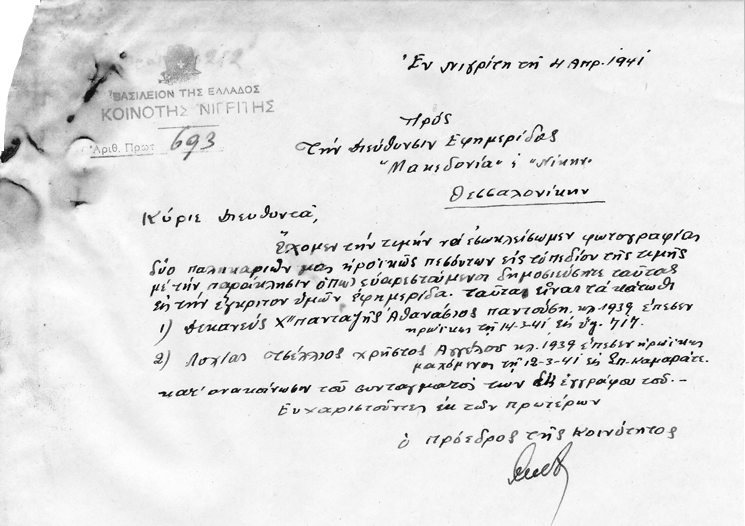 ΒΑΣΙΛΕΙΟΝ ΤΗΣ ΕΛΛΑΔΟΣ
ΚΟΙΝΟΤΗΣ ΝΙΓΡΙΤΗΣ
Αριθ. Πρωτ. 693
Ἐν Νιγρίτη τῇ 4 Απρ. 1941
Πρός
Τὴν Διεύθυνσιν Εφημερίδας
"Μακεδονία" ἢ "Νίκην"
Θεσσαλονίκην
Κύριε Διευθυντά,
Ἔχομεν τὴν τιμὴν νὰ ἐσωκλείσωμεν φωτογραφίας
δύο παληκαριῶν μας ἡροϊκῶς πεσόντων εἰς τὸ πεδίον τῆς τιμῆς
μὲ τὴν παράκλησιν ὅπως εὐαρεστούμενοι δημοσιεύσητε ταύτας
εἰς τὴν ἔγκριτον ὑμῶν ἐφημερίδα. Ταῦτα εἶναι τὰ κάτωθι
1) Δεκανεύς Χ" Πανταζῆς Ἀθανάσιος Παντούση κλ. 1939 ἔπεσεν
ἡρωϊκῶς τῇ 14-3-41 εἰς ὑψ. 717.
2) Λοχίας Τσέλλιος Χρῆστος Αγγέλου κλ. 1939 ἔπεσεν ἡρωϊκῶς
μαχόμενος τῇ 12-3-41 εἰς
κατ' ανακοίνωσιν τοῦ συντάγματός των ἐγγράφου του.
Ευχαριστοῦντες ἐκ τῶν προτέρων
ὁ Πρόεδρος τῆς Κοινότητος